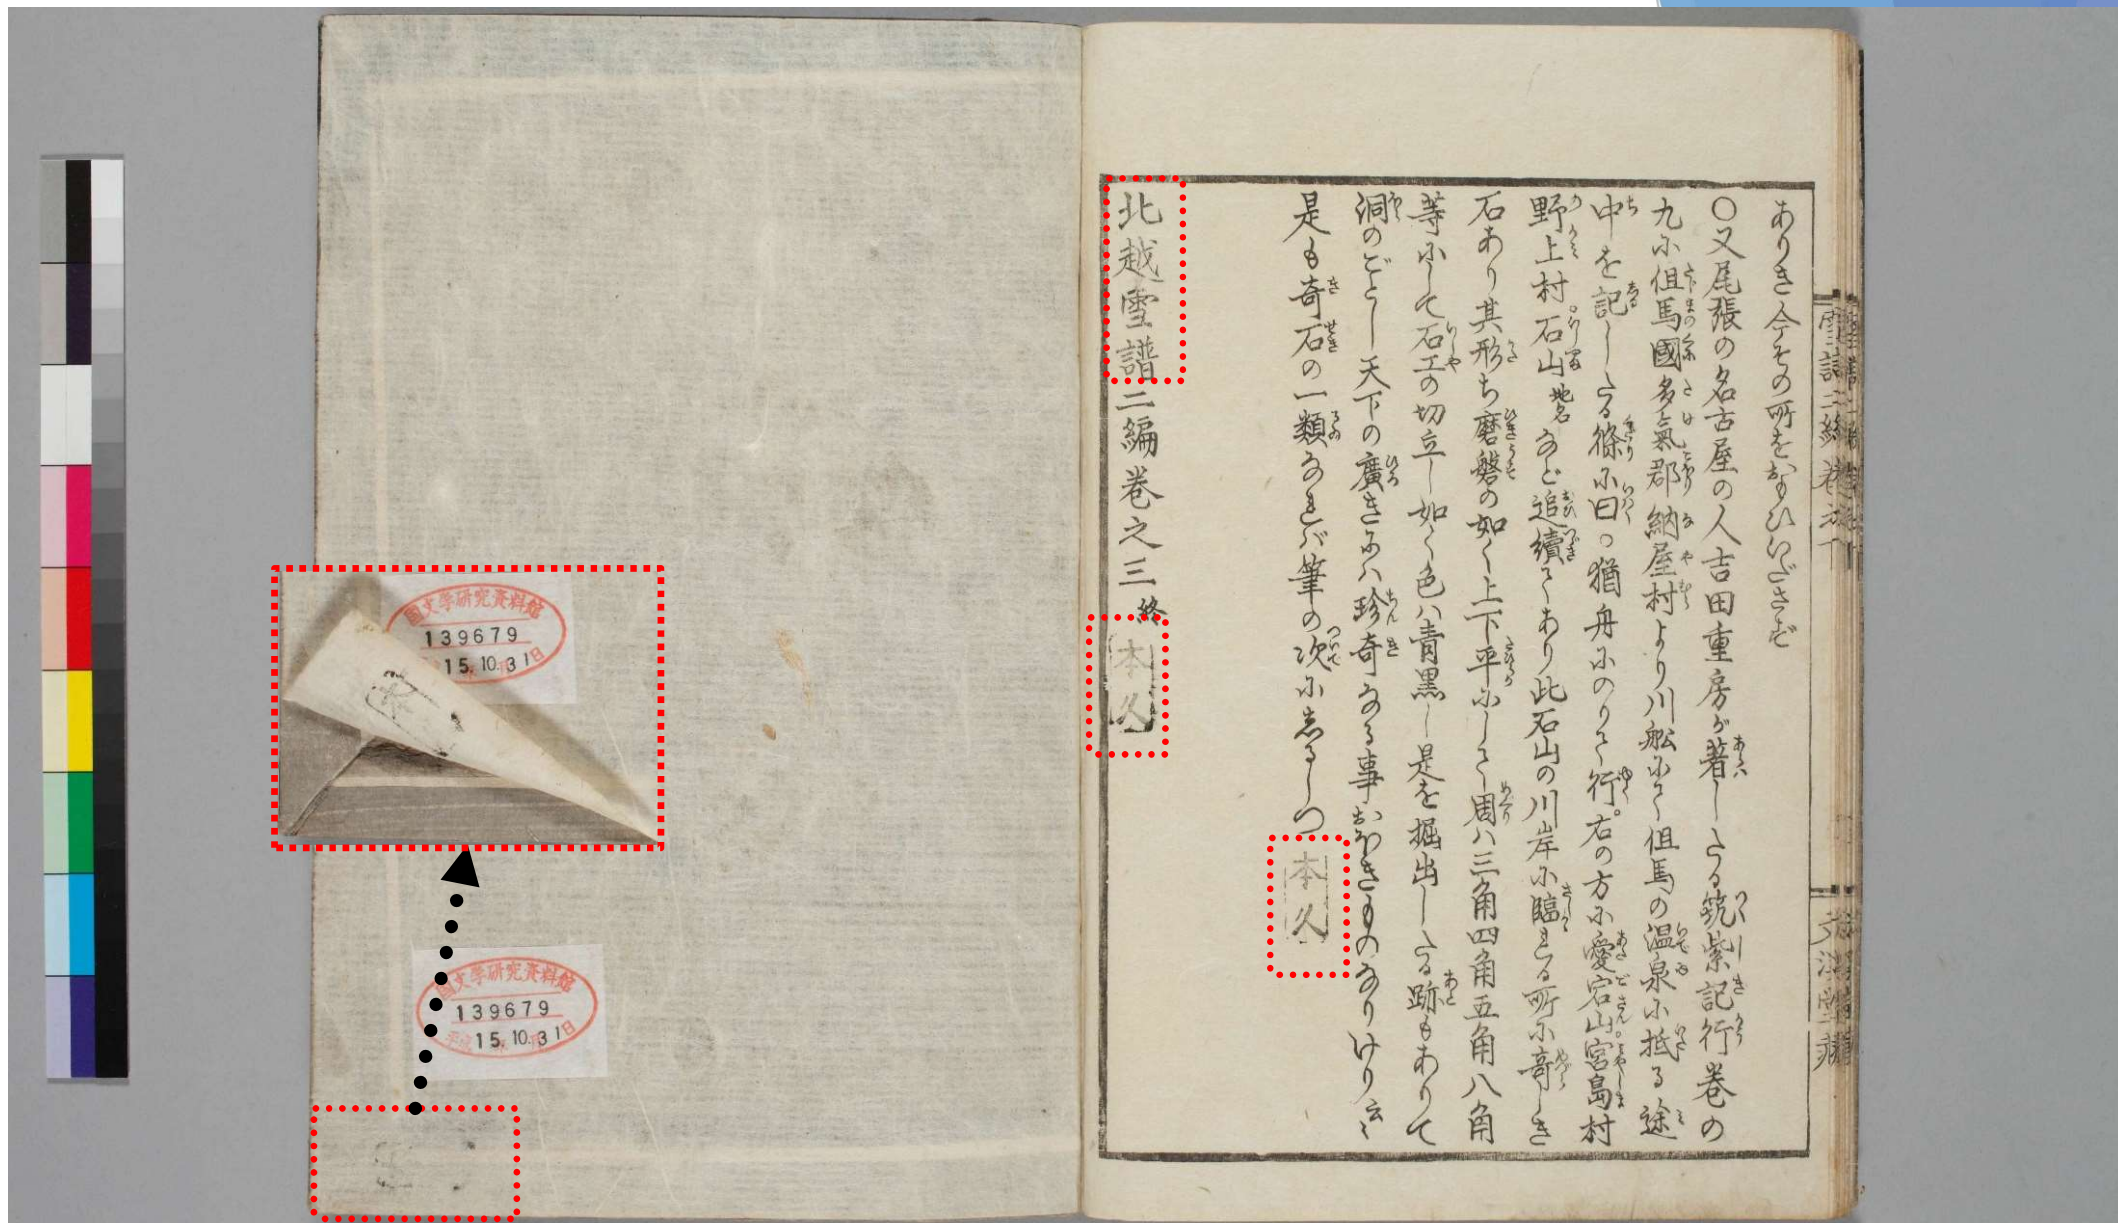 ありき今その所をおもひいださず
○又尾張の名古屋の人吉田重房が著したる筑紫記行巻の
九に但馬國多氣郡納屋村より川船にて但馬の温泉に抵る途
中を記したる條に曰○猶舟にのりて行。右の方に愛宕山。宮島村
野上村。石山地名など追續てあり此石山の川岸に臨たる所に奇しき
石あり其形ち磨磐の如く上下平にして周ハ三角四角五角八角
等にして石工の切立し如く色ハ青黒し是を掘出したる跡もありて
洞のごとし天下の廣きにハ珍奇なる事おほきものなりけり云々
是も奇石の一類なれバ筆の次にしるしつ
本久
北越雪譜二編巻之三終
本久
國文学研究資料館
139679
15.10.31日
國文学研究資料館
139679
平成15年10月31日